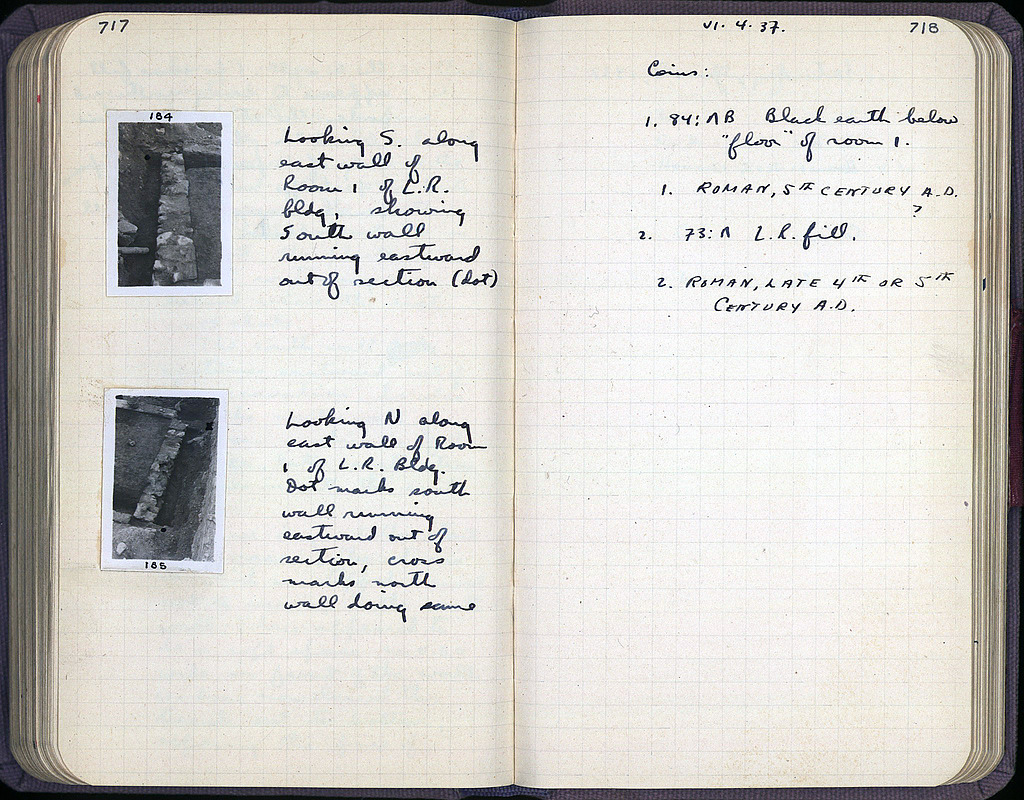 717
184
Looking S. along
east wall of
Room 1 of L.R.
bldg, showing
South wall
running eastward
out of section (dot)
185
Looking N along
east wall of Room
1 of L.R. Bldg.
Dot marks south
wall running
eastward out of
section, cross
marks north
wall doing same
VI. 4. 37.
718
Coins:
1. 84: ΛB Black earth below
"floor" of room 1.
1. ROMAN, 5TH CENTURY A.D.
?
2. 73: Λ L.R. fill.
2. ROMAN, LATE 4TH OR 5TH
CENTURY A.D.